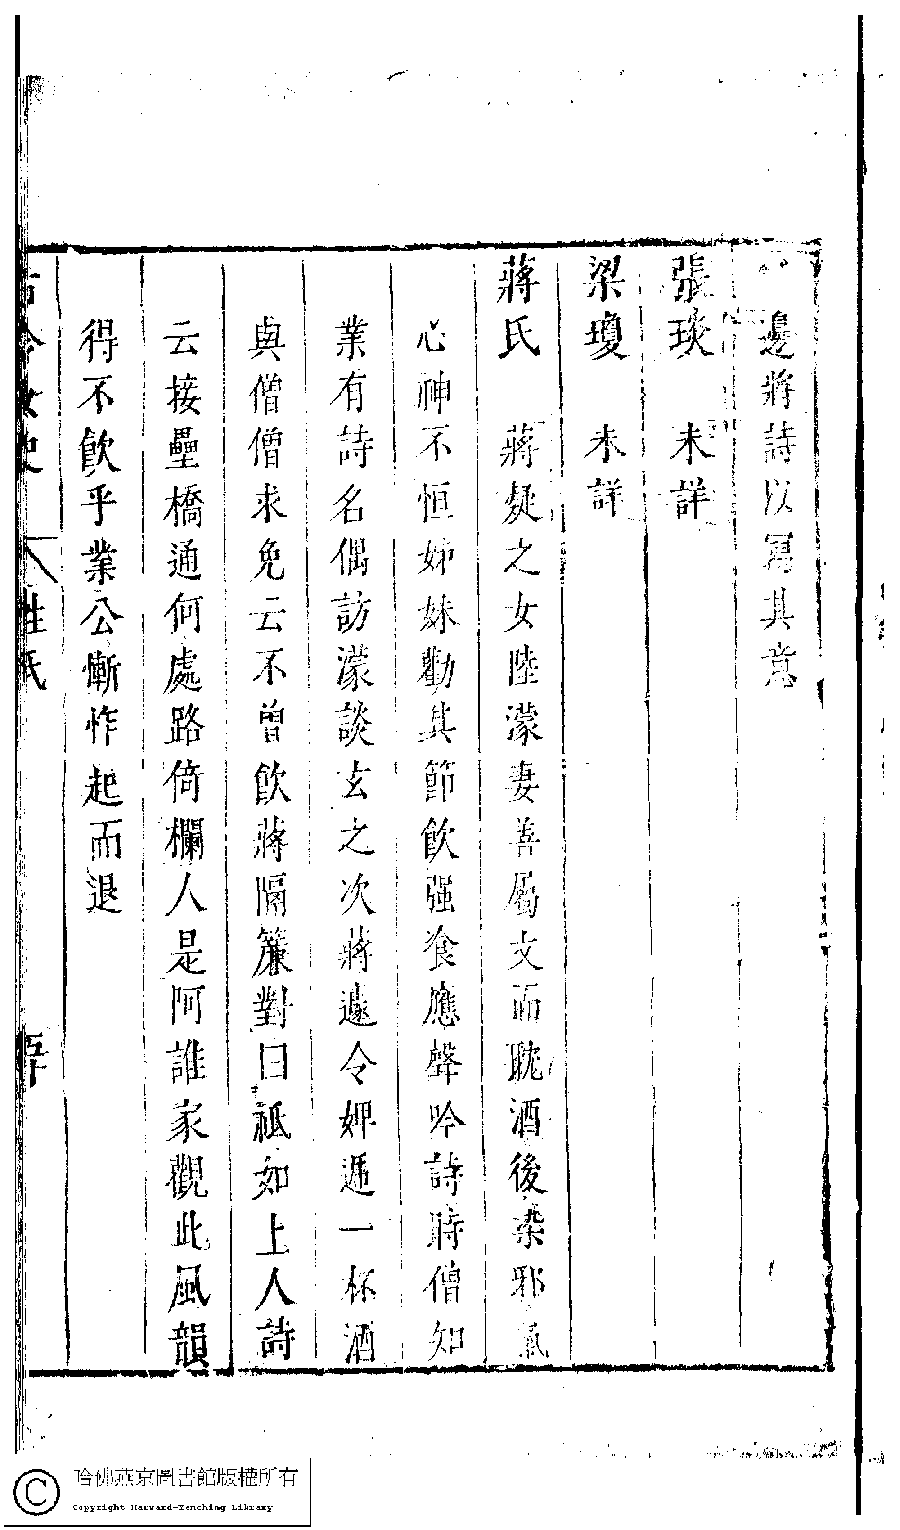 邊將詩以寫其意
張琰　未詳
梁瓊　未詳
蔣氏　蔣凝之女陸濛妻善屬文而耽酒後染邪氣
心神不恒姊妹勸其節飲强飡應聲吟詩時僧知
業有詩名偶訪濛談玄之次蔣遽令婢遞一杯酒
與僧僧求免云不曾飲蔣隔簾對曰祗如上人詩
云接壘橋通何處路倚欄人是阿誰家觀此風韻
得不飲乎業公慚怍起而退
古今女史　姓氏
哈佛燕京圖書館版權所有
Copyright Harvard-Yenching Library